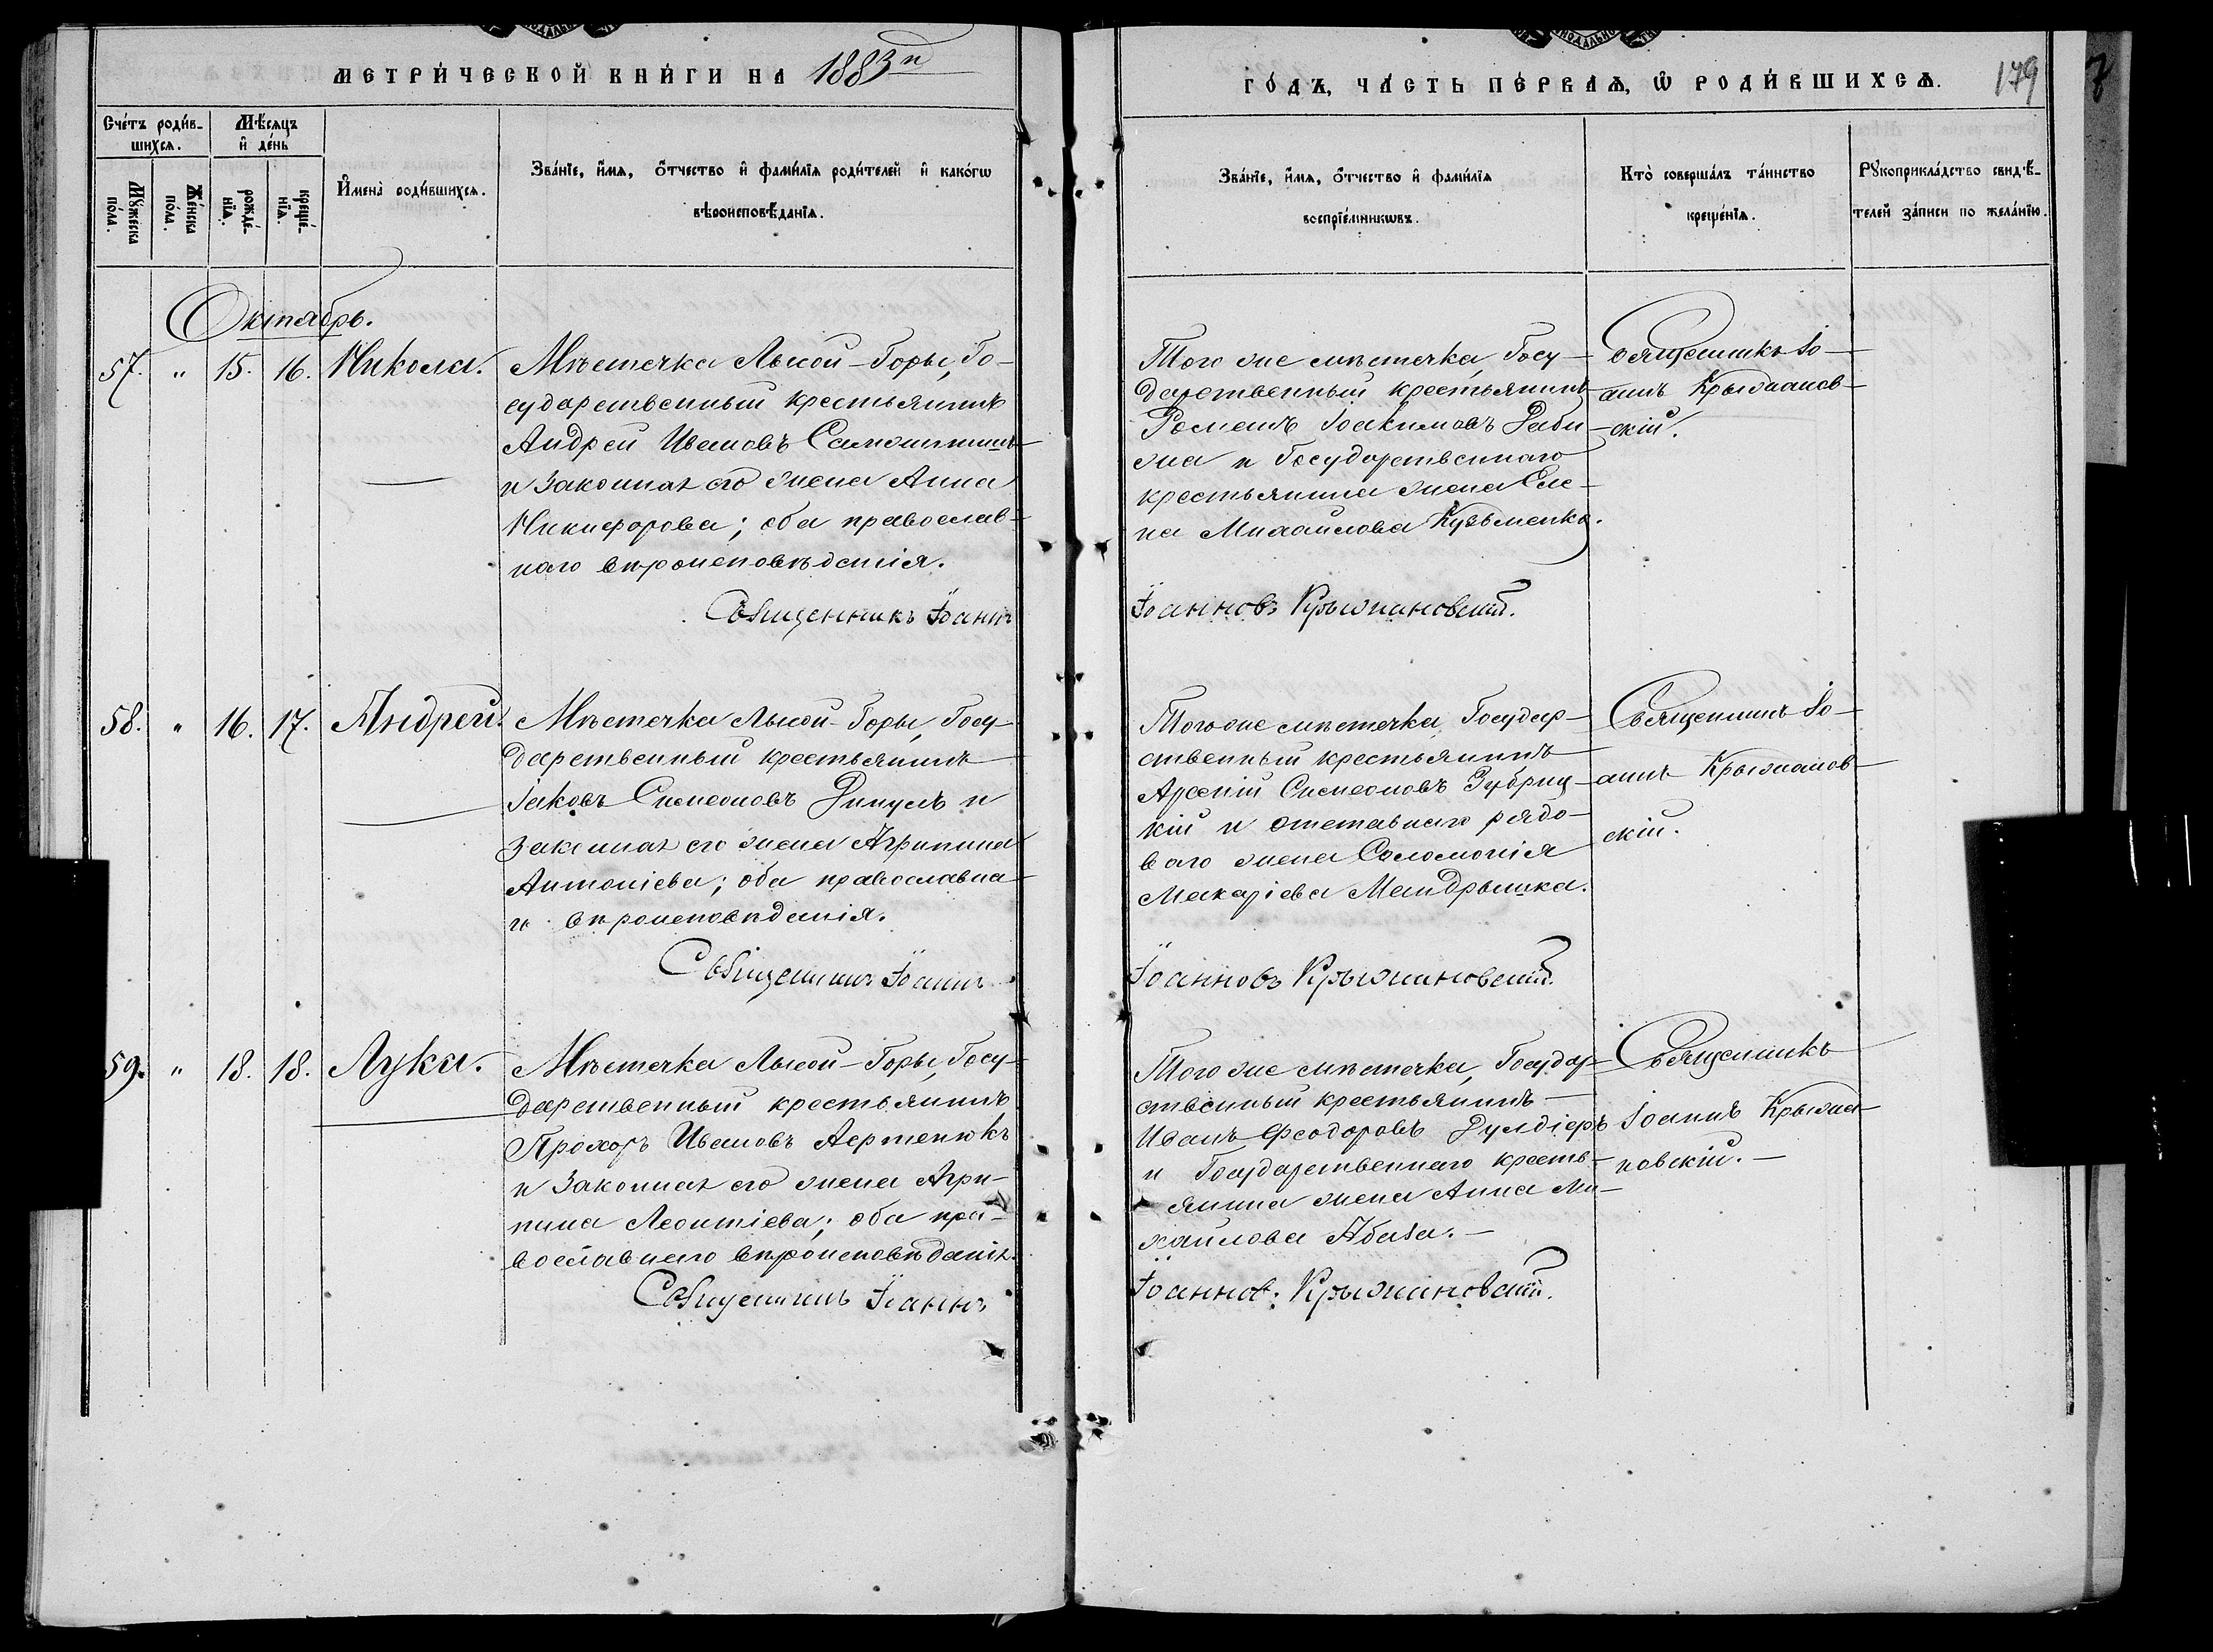 МЕТРИ́ЧЕСКОЙ КНИ́ГИ НА 1883й
ГО́ДЪ, ЧА́СТЬ ПЕ́РВАЯ, Ѡ҆ РОДИ́ВШИХСЯ.
179
Сче́тъ роди́в-
шихся.
Мѣ́сяцъ
и҆ де́нь
Мꙋ́жеска
по́ла.
Же́нска
по́ла.
рожде́-
нїя.
креще́-
нїя.
И҆мена̀ роди́вшихся.
Зва́нїе, и҆́мя, ѻ҆́тчество и҆ фами́лїя роди́телей и҆ како́гѡ
вѣроисповѣ́данїя.
Зва́нїе, и҆́мя, ѻ҆́тчество и҆ фами́лїя
воспрїе́мникѡвъ.
Кто̀ соверша́лъ та́инство
креще́нїя.
Рꙋкоприкла́дство свидѣ́-
телей за́писи по жела́нїю.
Октябрь.
57. " 15. 16. Никола.
Мѣстечка Лысой-Горы, Го-
сударственный крестьянинъ
Андрей Ивановъ
и законная его жена Анна
Никифорова; оба православ-
наго вѣроисповѣданія.
Священникъ Іоаннъ
Того же мѣстечка, Госу-
дарственный крестьянинъ
Романъ Іоакимовъ Раби-
жа и Государственнаго
крестьянина жена Еле-
на Михайлова Кузьменко.
Іоанновъ Крыжановскій.
Священникъ Іо-
аннъ Крыжанов-
скій.
58. " 16. 17. Андрей.
Мѣстечка Лысой-Горы, Госу-
дарственный крестьянинъ
Іаковъ Симеоновъ и
законная его жена Агрипина
Антоніева; оба православна-
го вѣроисповѣданія.
Священникъ Іоаннъ
Того же мѣстечка, Государ-
ственный крестьянинъ
Арсеній Симеоновъ Зубриц-
кій и отставнаго рядо-
ваго жена Соломонія
Макаріева Мандрышка.
Іоанновъ Крыжановскій.
Священникъ Іо-
аннъ Крыжанов-
скій.
59. " 18. 18. Лука.
Мѣстечка Лысой-Горы, Госу-
дарственный крестьянинъ
Прохоръ Ивановъ Артенюкъ
и законная его жена Агри-
пина Леонтіева; оба пра-
вославнаго вѣроисповѣданія.
Священникъ Іоаннъ
Того же мѣстечка, Государ-
ственный крестьянинъ
Иванъ Феодоровъ Дулдіеръ
и Государственнаго кресть-
янина жена Анна Ми-
хайлова Абаза.
Іоаннов. Крыжановскій.
Священникъ
Іоаннъ Крыжа-
новскій.